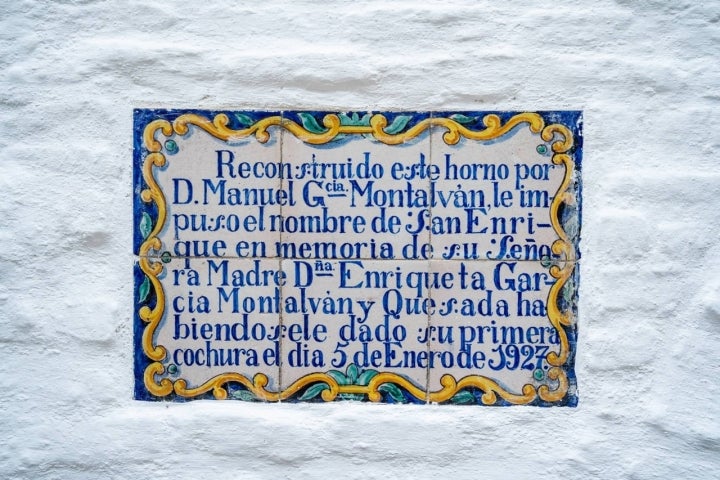 Reconstruido este horno por
D. Manuel Gcia. Montalván, le im-
puso el nombre de San Enri-
que en memoria de su Seño
ra Madre Dña. Enriqueta Gar-
cia Montalván y Quesada ha
biendosele dado su primera
cochura el dia 5 de Enero de 1927.